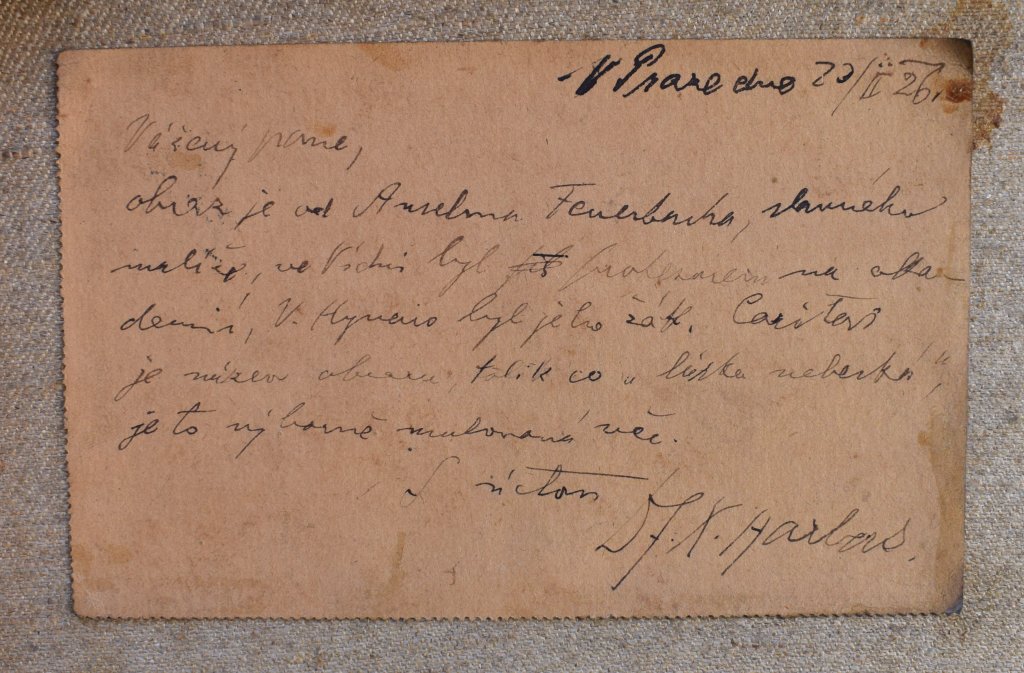 V Praze dne 23/II 26.
Vážený pane,
obraz je od Anselma Feuerbacha, slavného
malíře, ve Vídni byl profesorem na aka-
demii, V. Hynais byl jeho žák. Caritas
je název obrazu, tolik co „láska nebeská",
je to výborně malovaná věc.
S úctou
Dr J. X. Harlas.